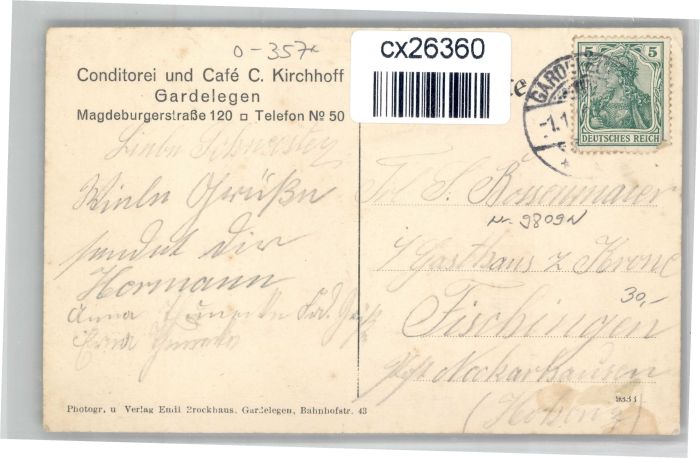 o-357a
cx26360
5 5
DEUTSCHES REICH
GARDELEGEN
-1.1
Conditorei und Café C. Kirchhoff
Gardelegen
Magdeburgerstraße 120 □ Telefon № 50
Liebe Schwester
Viele Grüße
sendet dir
Hermann
Anna
Frl. S.
Nr. 9809N
i/ Gasthaus z Krone
30,-
Fischingen
Post Neckarhausen
(Hohenz)
Photogr. u Verlag Emil Brockhaus, Gardelegen, Bahnhofstr. 43